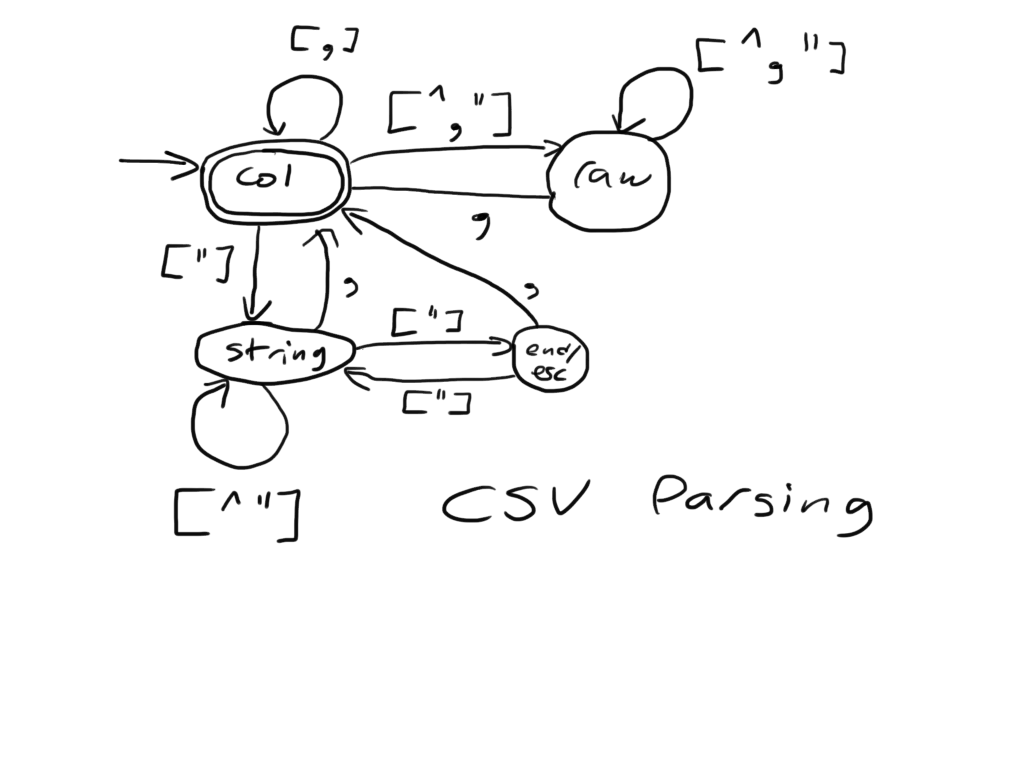 [,]
[^,"]
[^,"]
col
raw
,
["]
,
,
["]
string
end/
esc
["]
[^"]
CSV Parsing